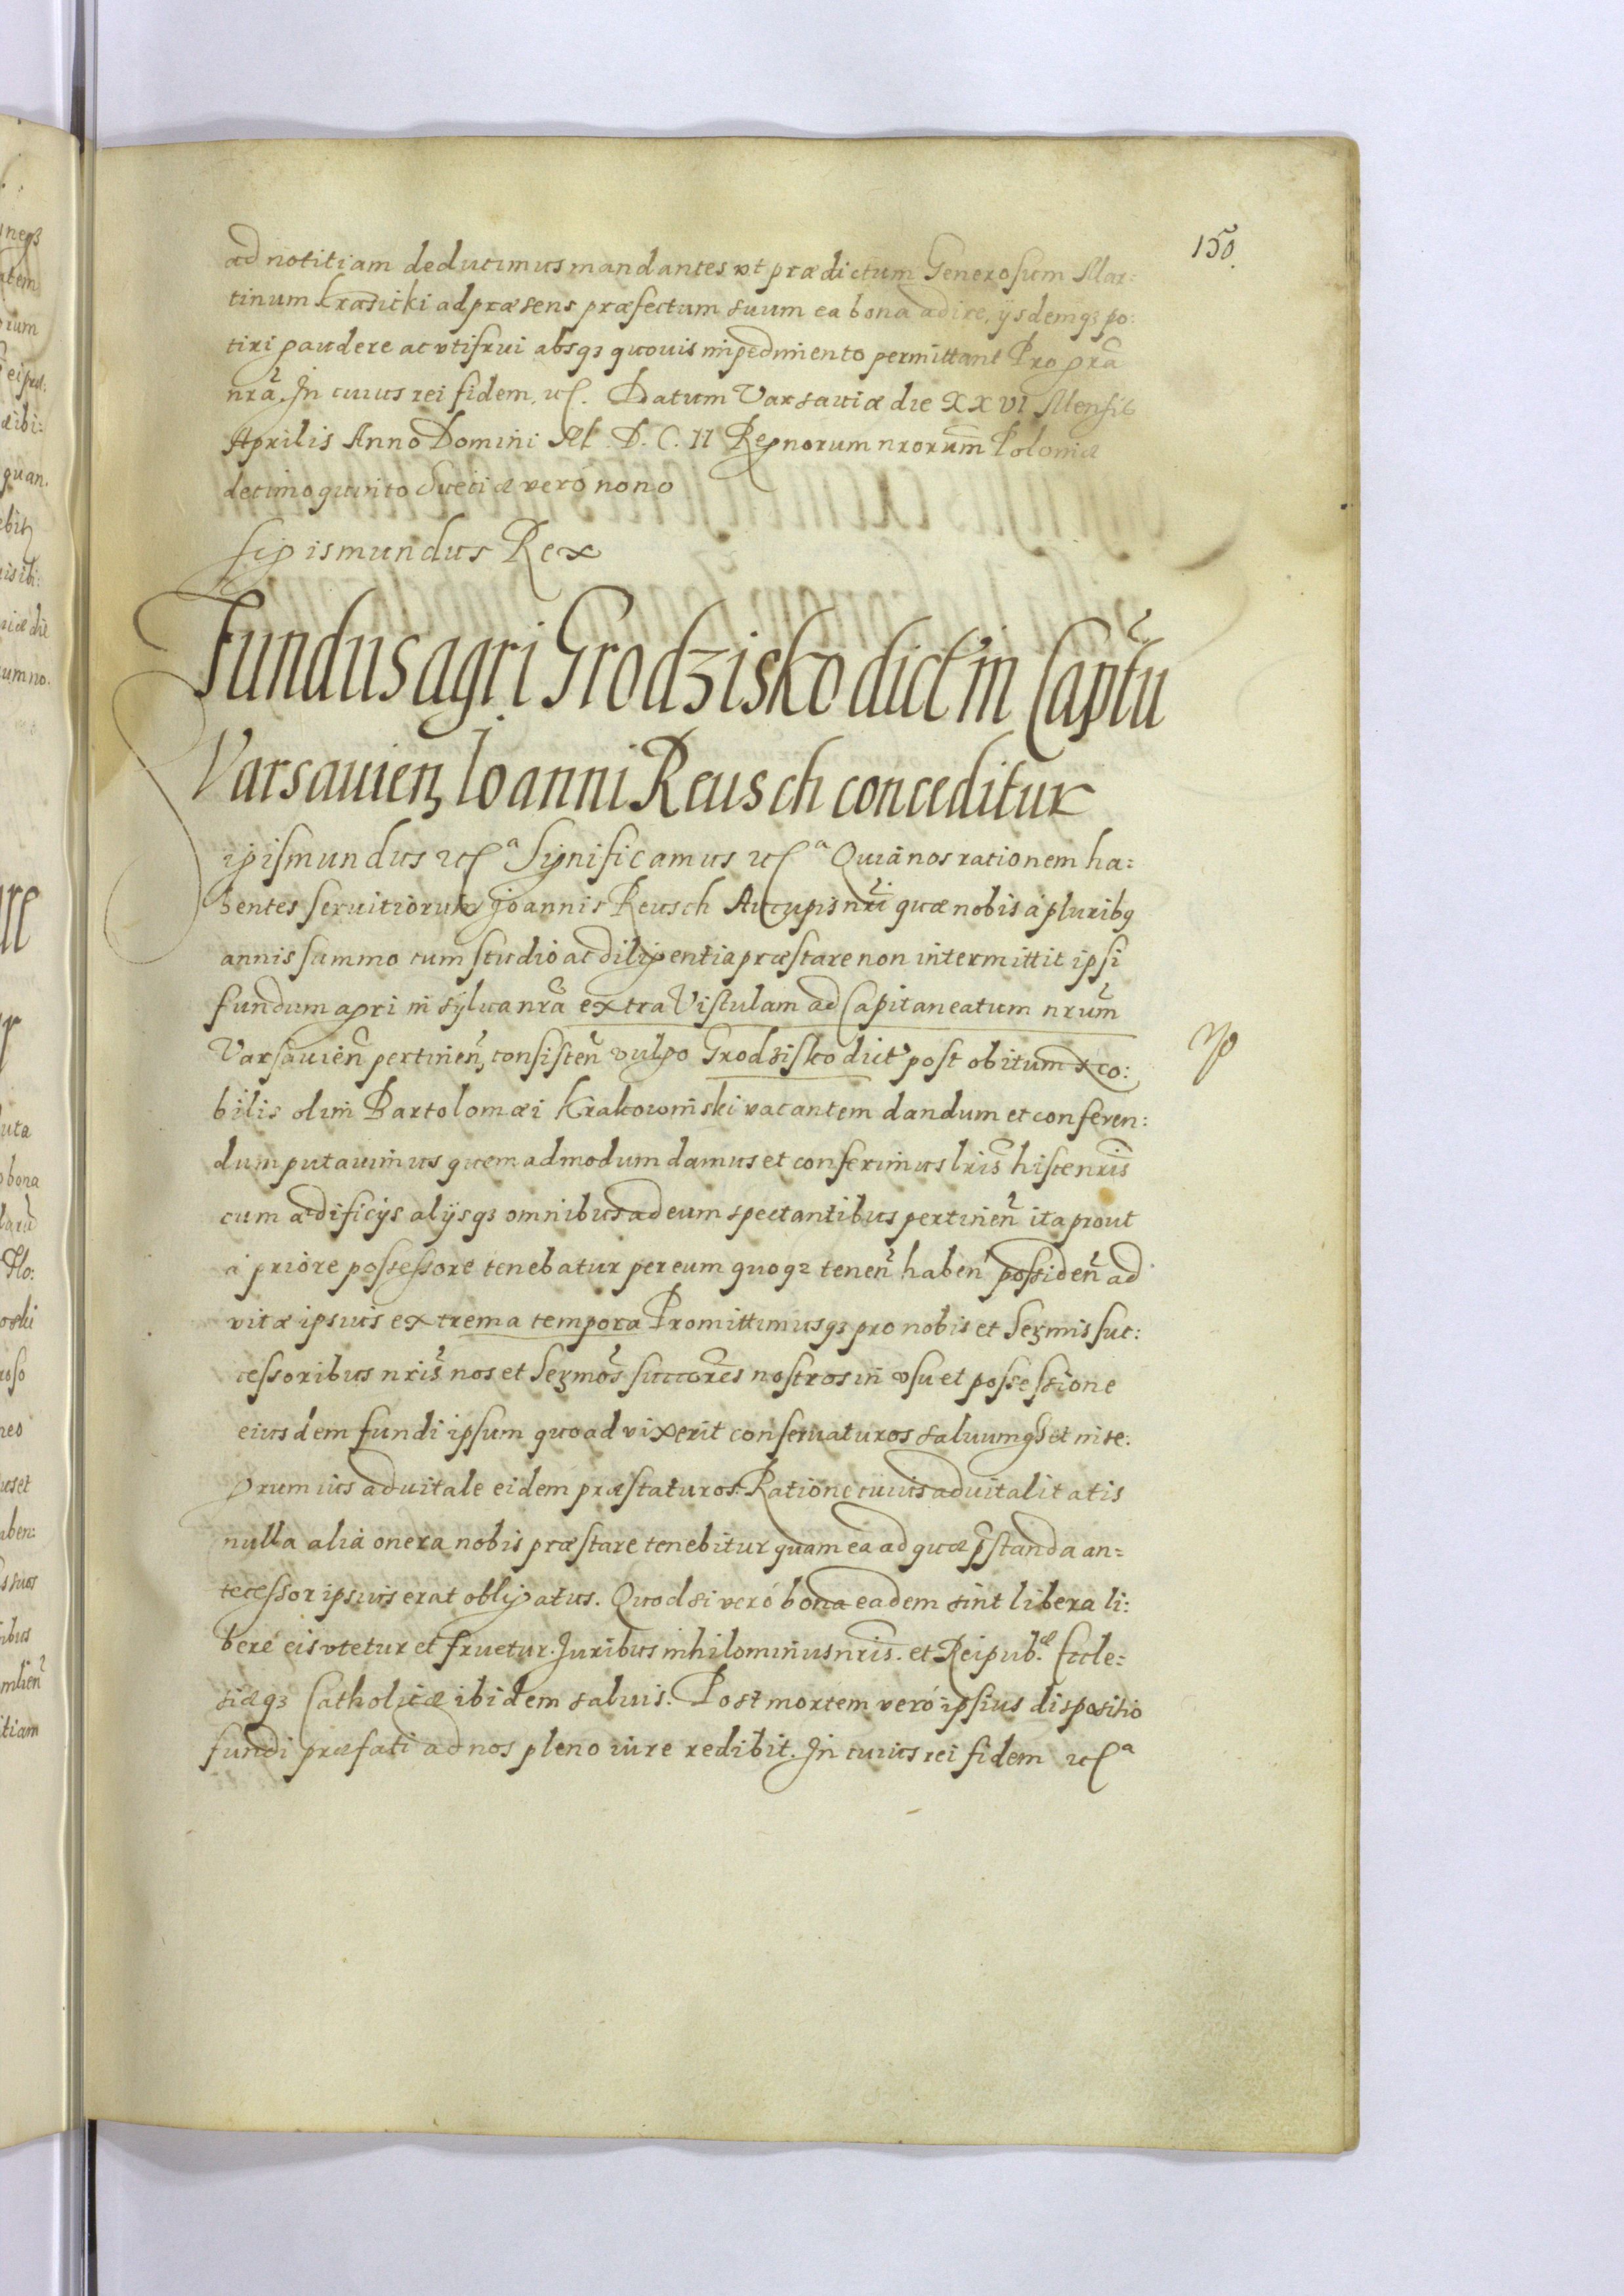 150.
ad notitiam deducimus mandantes vt prædictum Generosum Mar:
tinum Krasicki ad præsens præfectum suum ea bona adire, ijsdemq3 po:
tiri gaudere ac vtifrui absq3 quouis impedimento permittant Pro gra
nra. In cuius rei fidem, etc. Datum Varsauiæ die XXVI Mensis
Aprilis Anno Domini M. D. C. II Regnorum nrorum Poloniæ
decimoquinto Sueciæ veró nono
Sigismundus Rex
Fundus agri Grodzisko dict in Captu
Varsauien, Ioanni Reusch conceditur
igismundus etc^a Significamus etc^a Quia nos rationem ha:
bentes seruitiorum Joannis Reusch Aucupis nri quæ nobis á pluribq
annis summo cum studio ac diligentia præstare non intermittit ipsi
fundum agri in sylua nra extra Vistulam ad Capitaneatum nrum
Varsauien pertinen, consisten vulgo Grodzisko dict post obitum
bilis olim Bartolomæi Krakowinski vacantem dandum et conferen:
dum putauimus quemadmodum damus et conferimus lris hisce nris
cum ædificijs alijsq3 omnibus ad eum spectantibus pertinen ita prout
á priore possessore tenebatur per eum quoq3 tenen haben possiden ad
vitæ ipsius extrema tempora Promittimusq3 pro nobis et Sermis suc:
cessoribus nris nos et Sermos succores nostros in vsu et possessione
eiusdem fundi ipsum quoad vixerit conseruaturos saluumq3 et inte:
grum ius aduitale eidem præstaturos. Ratione cuius aduitalitatis
nulla alia onera nobis præstare tenebitur quam ea ad quæ pstanda an=
tecessor ipsius erat obligatus. Quod si veró bona eadem sint libera li:
bere eis vtetur et fruetur. Juribus nihilominus nris. et Reipub.æ Eccle=
siæq3 Catholicæ ibidem saluis. Post mortem veró ipsius dispositio
fundi præfati ad nos pleno iure redibit. In cuius rei fidem etc^a